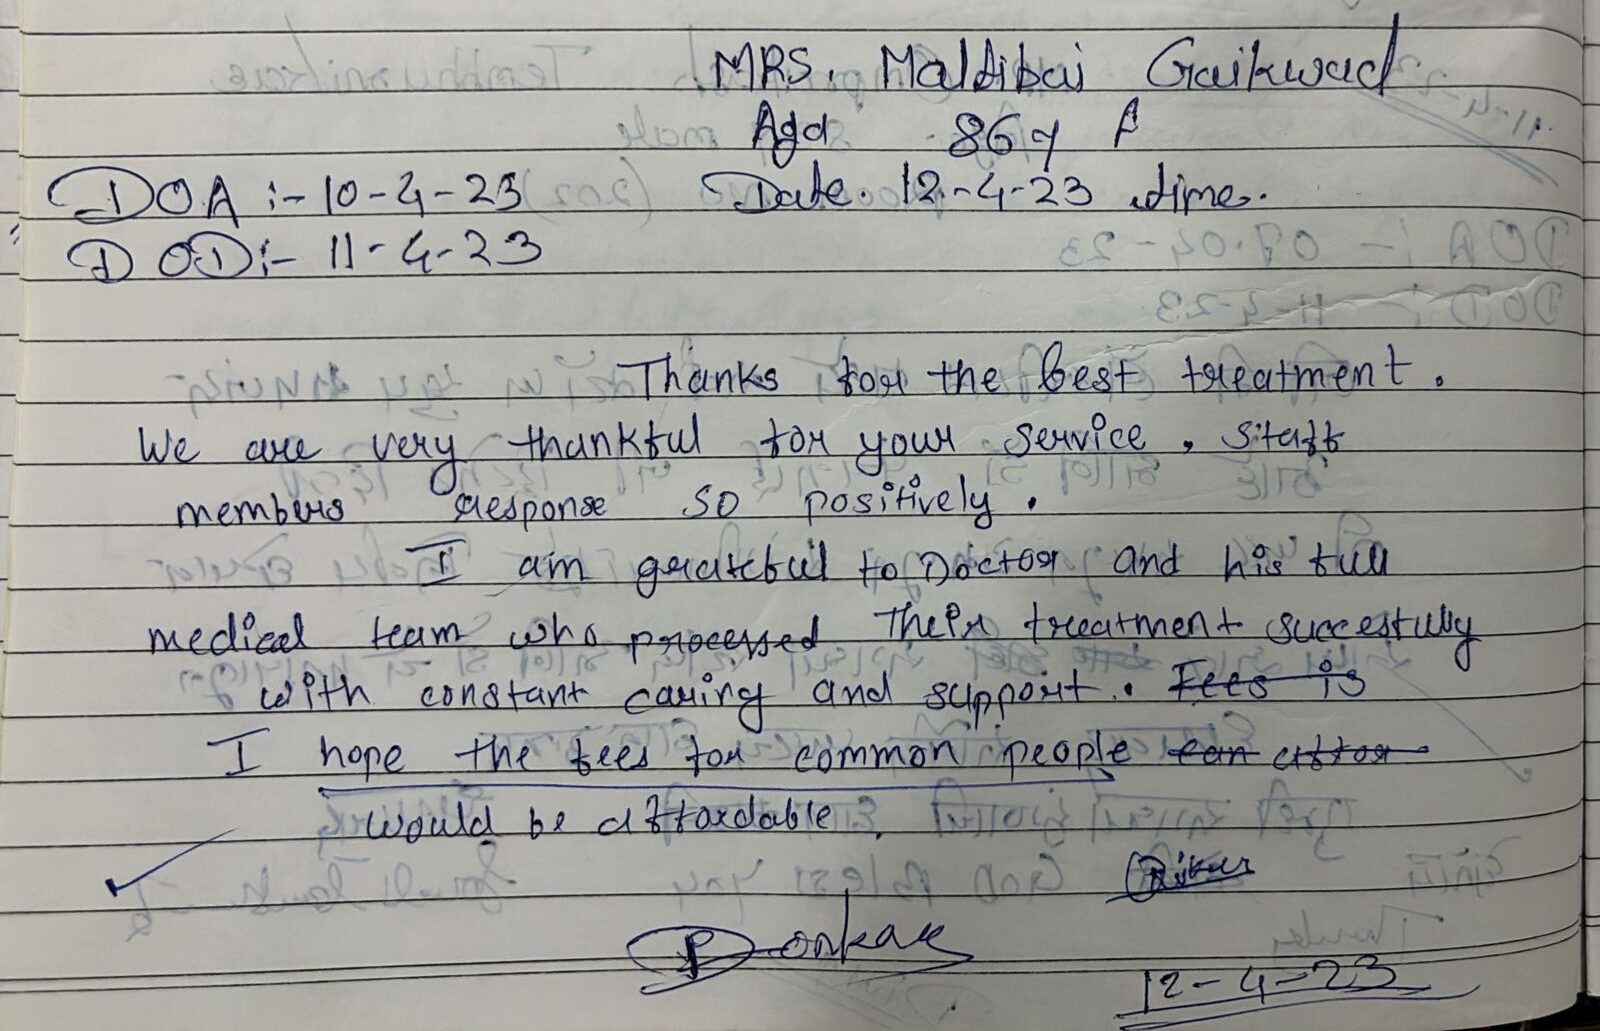 MRS. Maltibai Gaikwad
Age 86 y F
DOA :- 10-4-23 Date. 12-4-23 time.
DOD :- 11-4-23
Thanks for the best treatment.
We are very thankful for your service, staff
members response so positively.
I am grateful to Doctor and his full
medical team who processed Their treatment succesfully
with constant caring and support. Fees is
I hope the fees for common people can affor
would be affordable.
12-4-23